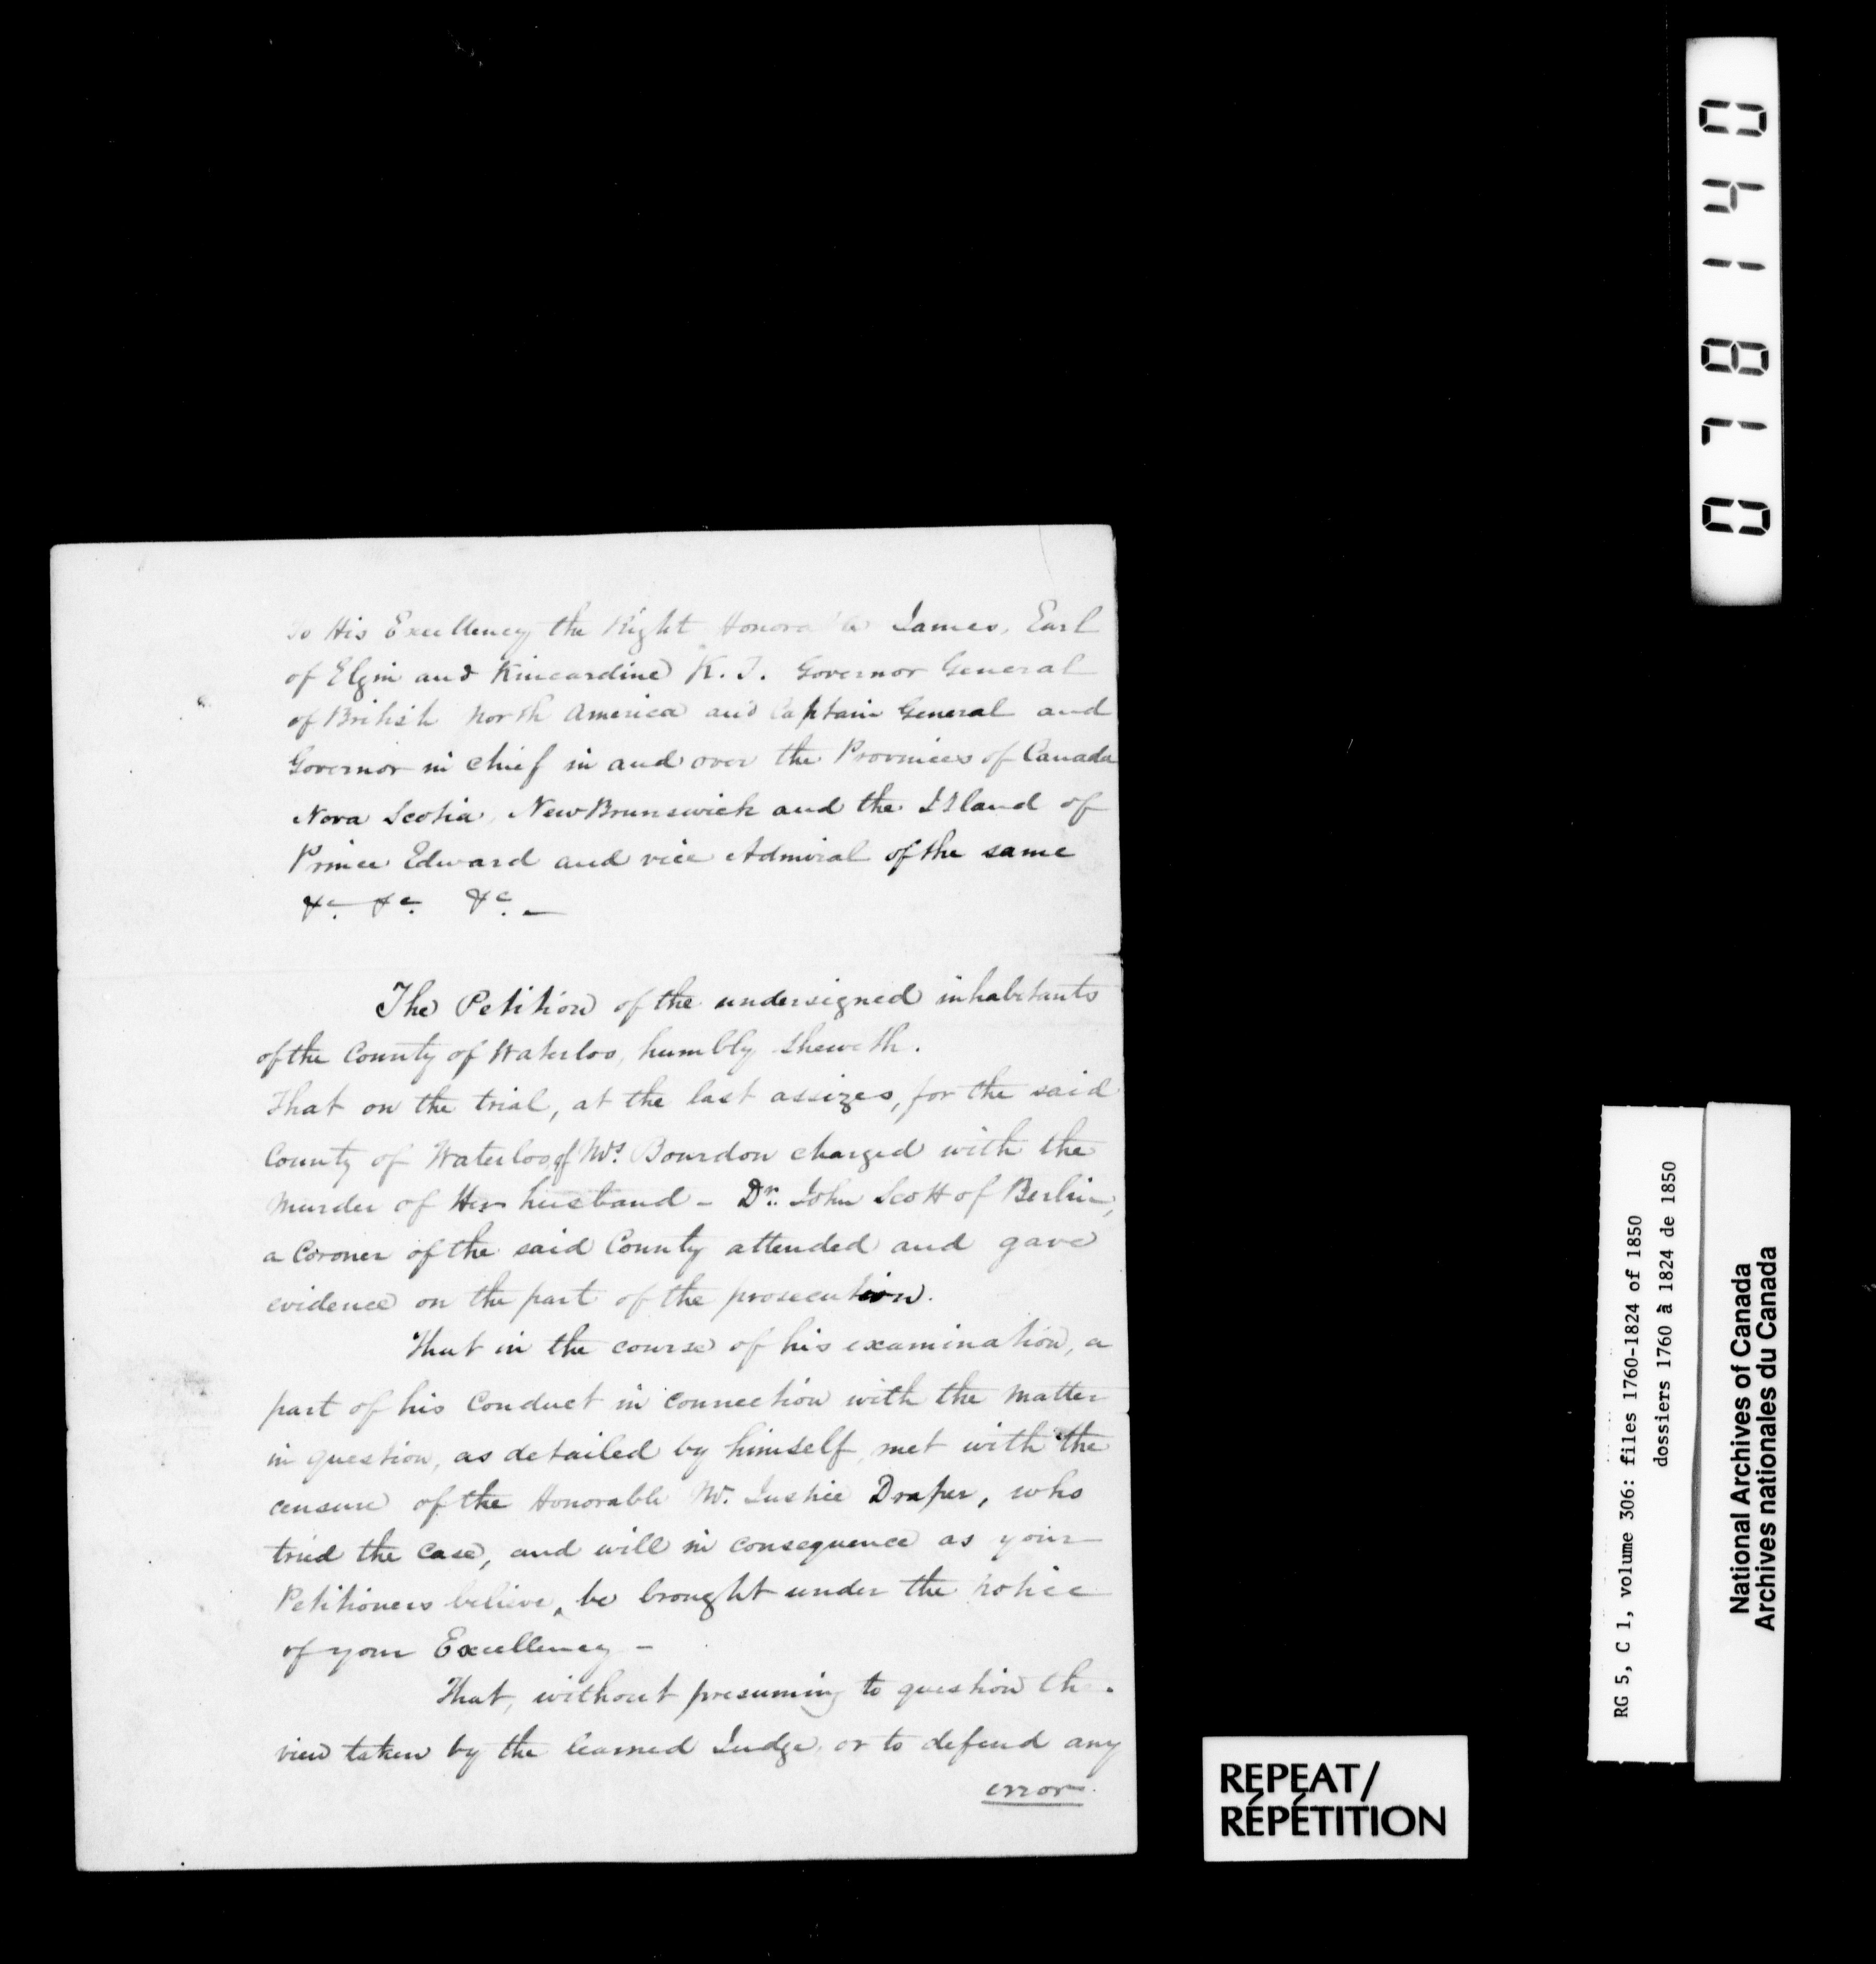 To His Excellency the Right Honorable James, Earl
of Elgin and Kincardine K. T. Governor General
of British North America and Captain General and
Governor in chief in and over the Provinces of Canada
Nova Scotia, New Brunswick and the Island of
Prince Edward and vice Admiral of the same
&c. &c. &c. —
The Petition of the undersigned inhabitants
of the County of Waterloo, humbly sheweth.
That on the trial, at the last assizes, for the said
County of Waterloo, of Mrs. Bourdon charged with the
Murder of Her husband – Dr. John Scott of Berlin,
a Coroner of the said County attended and gave
evidence on the part of the prosecution.
That in the course of his examination, a
part of his Conduct in connection with the matter
in question, as detailed by himself, met with the
censure of the Honorable Mr. Justice Draper, who
tried the case, and will in consequence as your
Petitioners believe, be brought under the notice
of your Excellency –
That, without presuming to question the
view taken by the learned Judge, or to defend any
error
078140
RG 5, C 1, volume 306: files 1760-1824 of 1850
dossiers 1760 à 1824 de 1850
National Archives of Canada
Archives nationales du Canada
REPEAT/
RÉPÉTITION